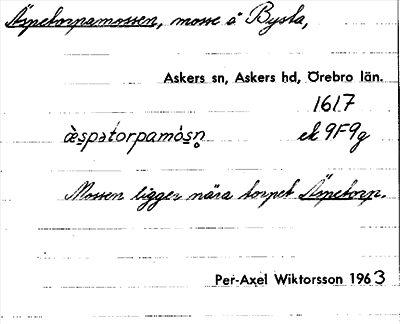 Äspetorpamossen, mosse å Bysta,
Askers sn, Askers hd, Örebro län.
1617
æ̀spətorpamòsn̥ ek 9F9g
Mossen ligger nära torpet Äspetorp.
Per-Axel Wiktorsson 1963